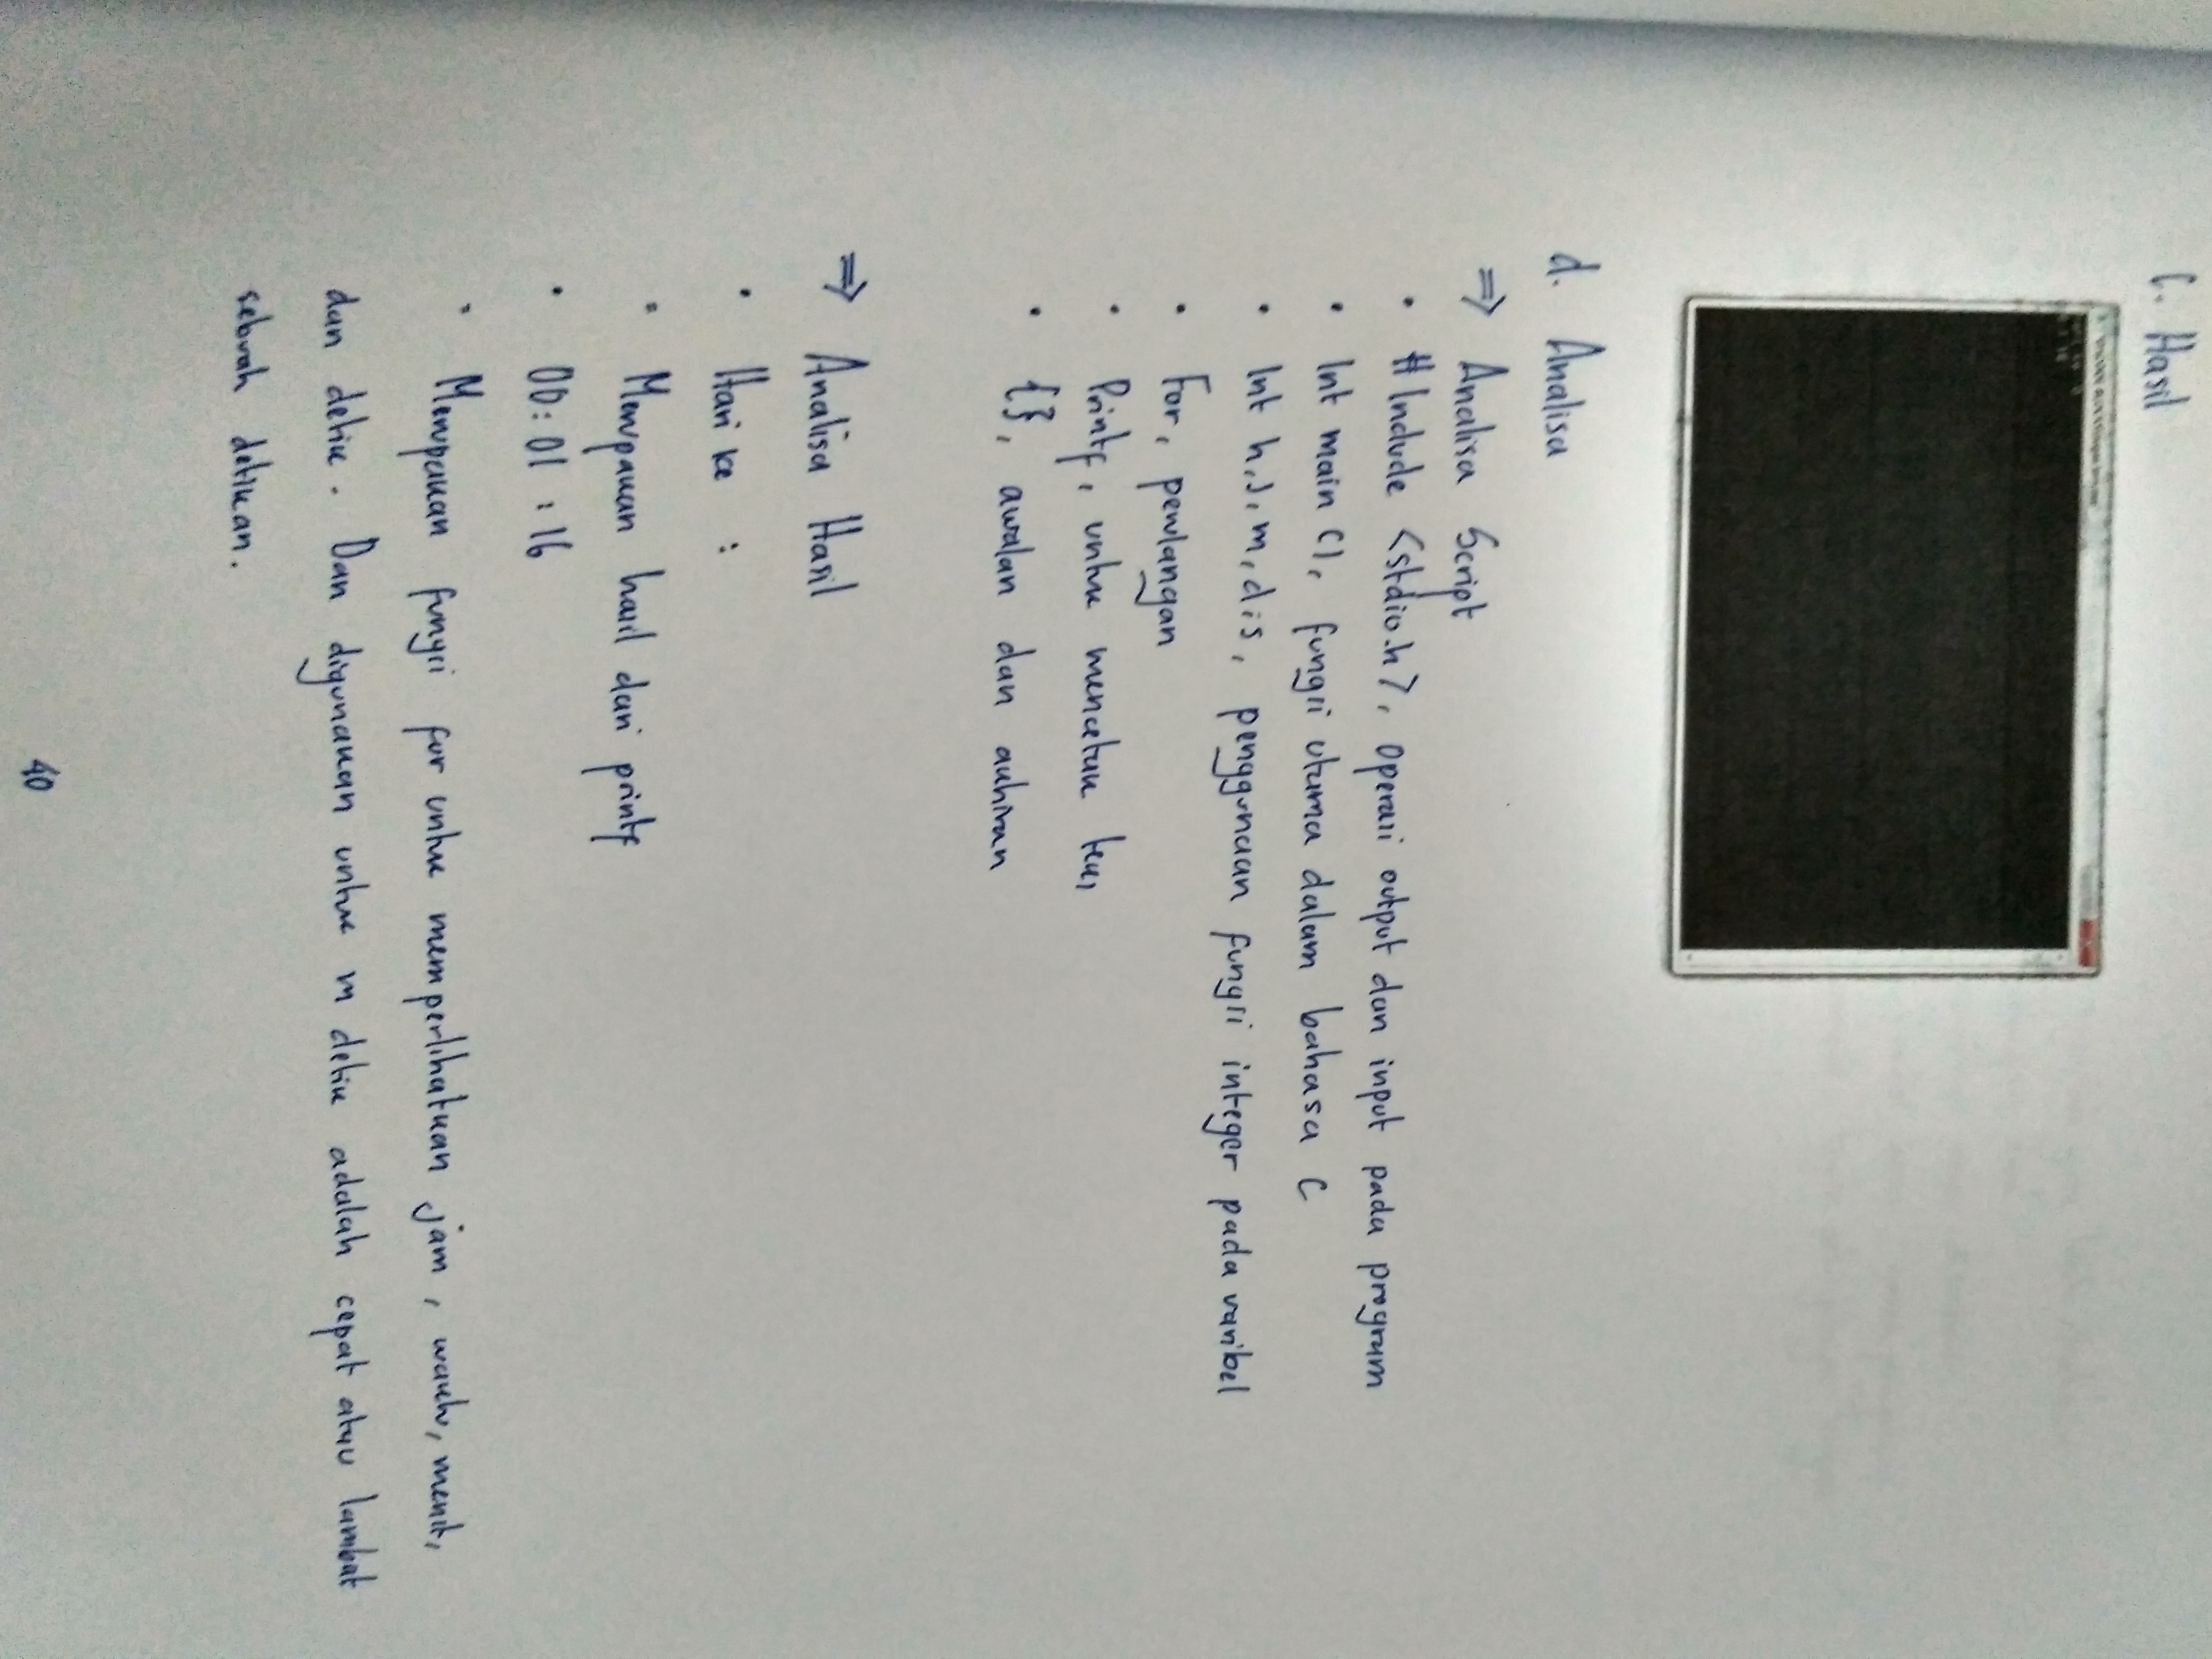 C. Hasil
d. Analisa
⇒ Analisa Script
• #Include <stdio.h>, Operasi output dan input pada program
• Int main (), fungsi utama dalam bahasa C
• Int h, J, m, d, s, penggunaan fungsi integer pada varibel
• For, perulangan
• Printf, untuk mencetak teks
• {}, awalan dan akhiran
⇒ Analisa Hasil
• Hari ke :
• Merupakan hasil dari printf
• 00 : 01 : 16
• Merupakan fungsi for untuk memperlihatkan jam, waktu, menit,
dan detik. Dan digunakan untuk m detik adalah cepat atau lambat
sebuah detikan.
40